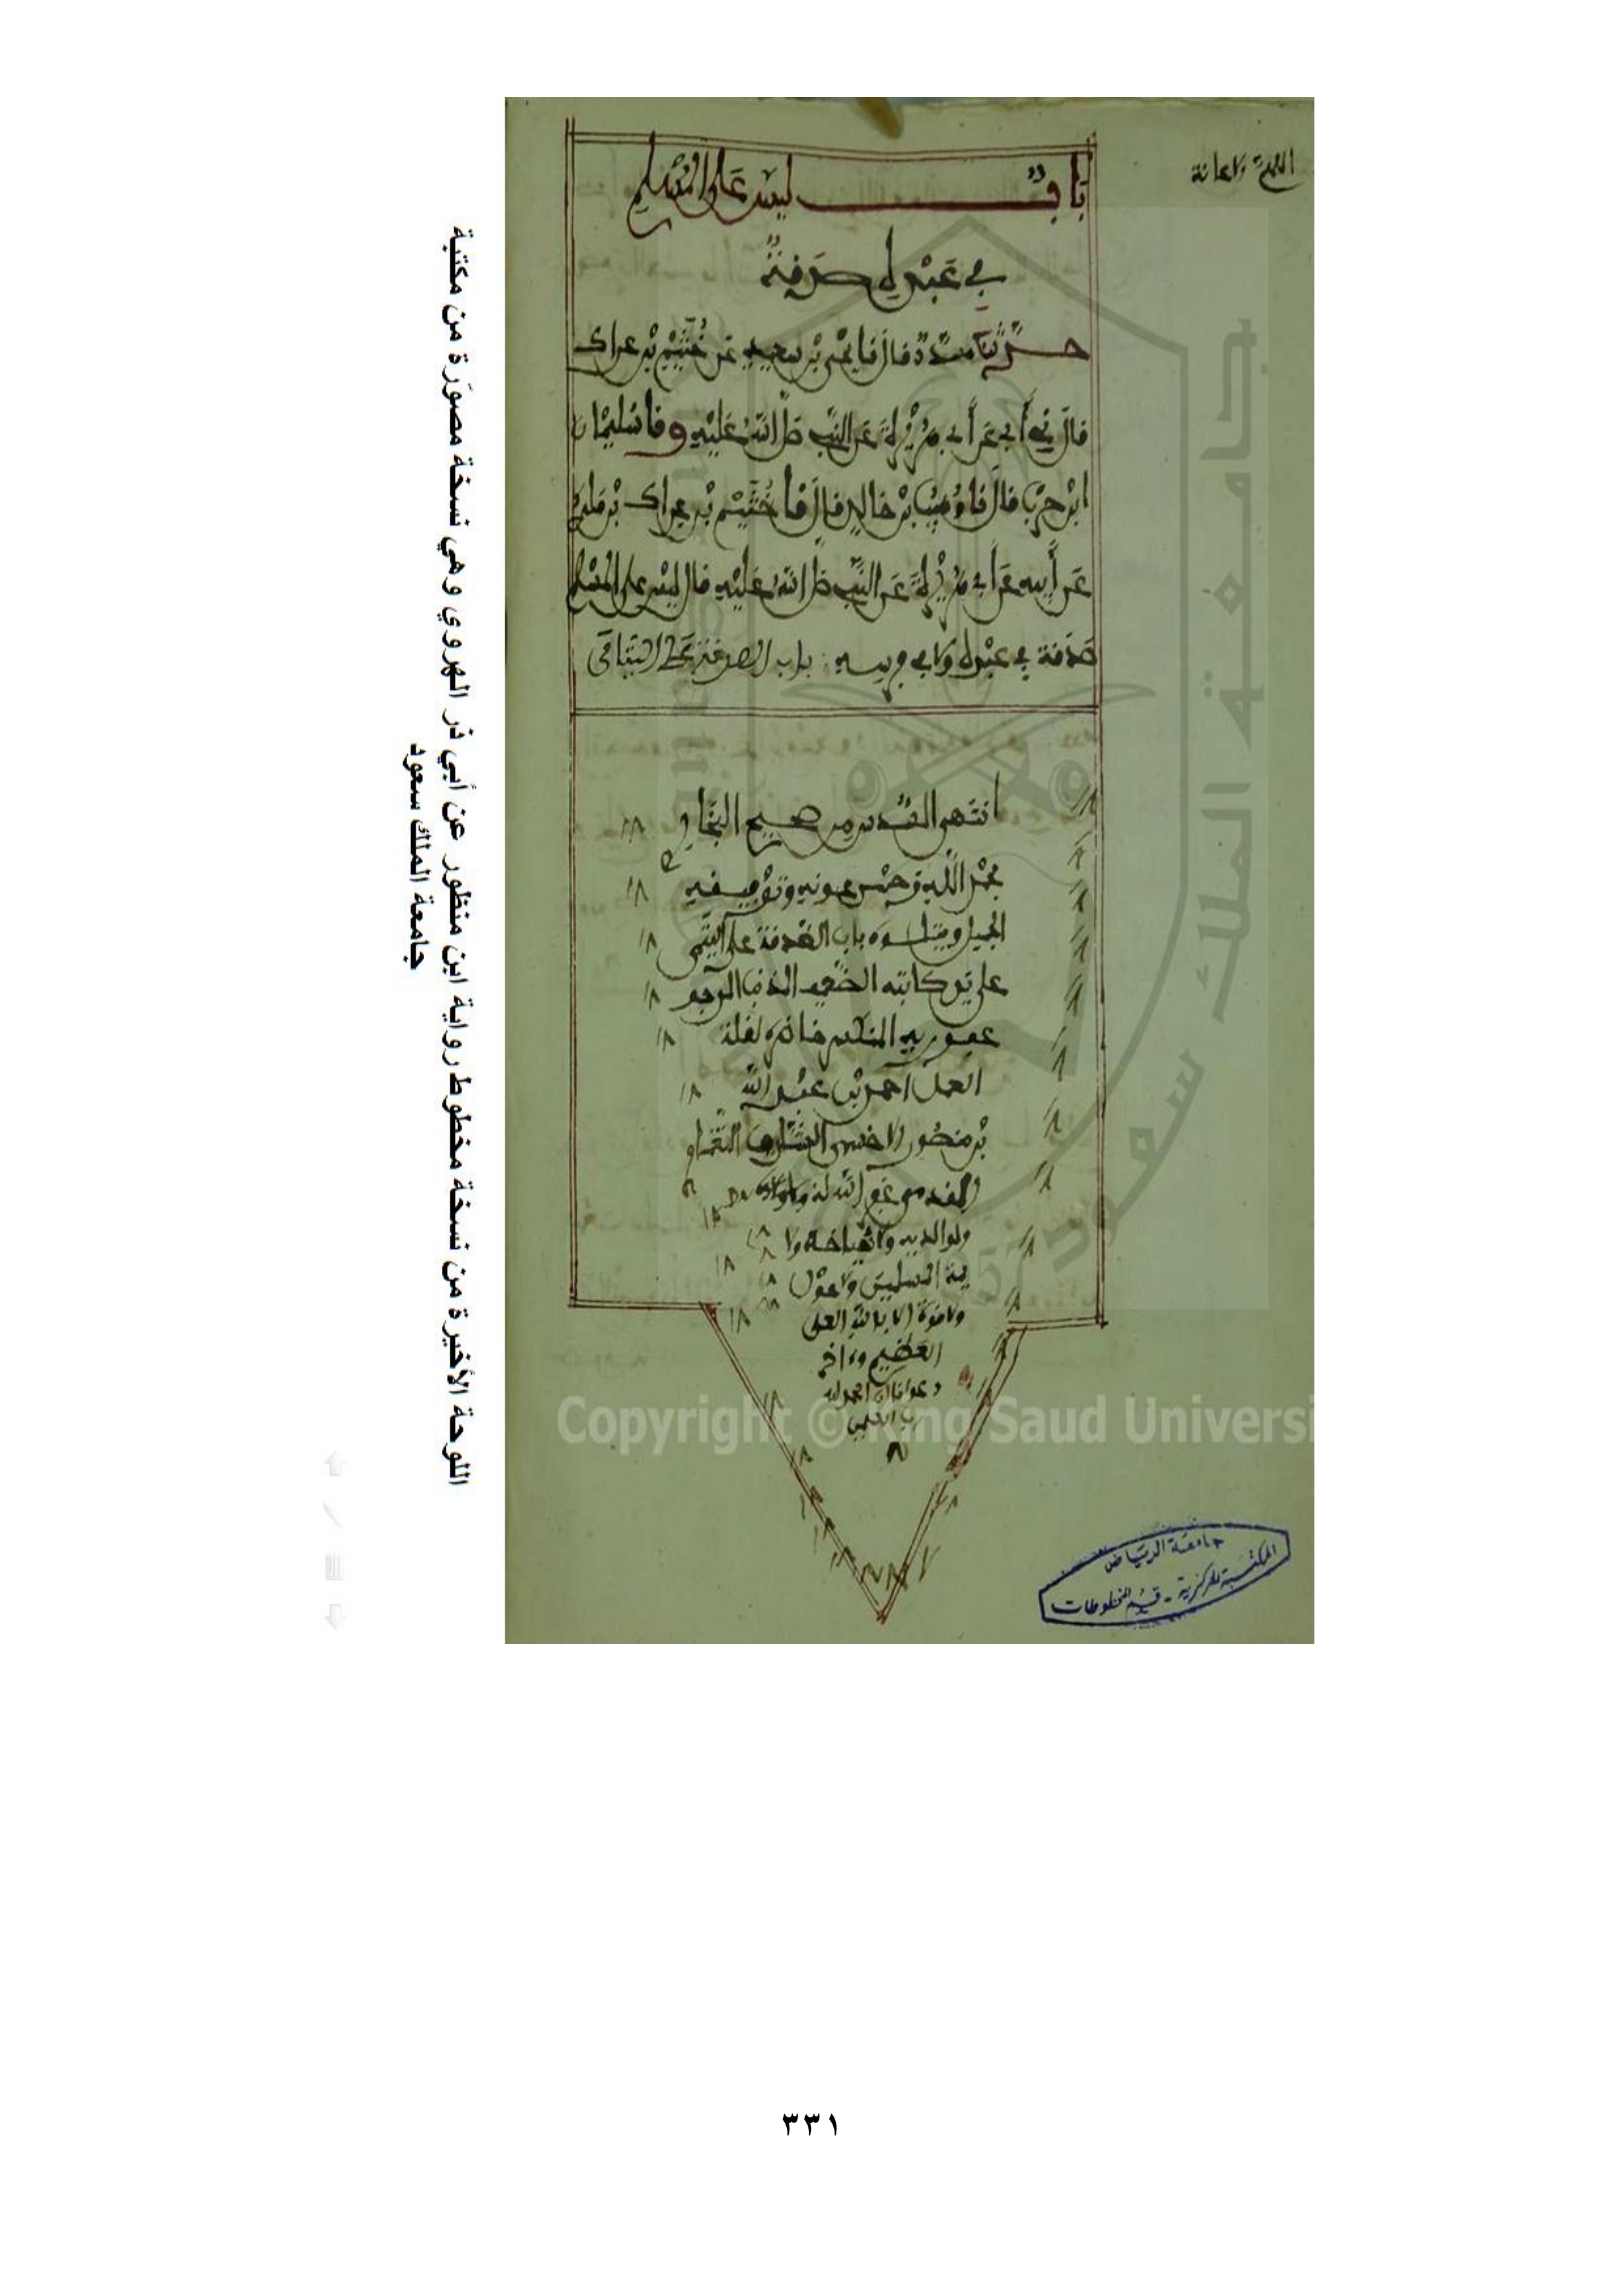 اللهم الاعانة
باب ليس على المسلم
في عبده صدقة
حدثنا مسدد قال نا يحيى بن سعيد عن خثيم بن عراك
قال ني أبي عن أبي هريرة عن النبي صلى الله عليه ونا سليمان
ابن حرب قال نا وهيب بن خالد قال نا خثيم بن عراك بن مالك
عن أبيه عن أبي هريرة عن النبي صلى الله عليه قال ليس على المسلم
صدقة في عبده ولا في فرسه باب الصدقة على اليتامى
انتهى السدس من صحيح البخاري
بحمد الله وحسن عونه وتوفيقه
الجميل ويتلوه باب الصدقة على اليتامى
على يد كاتبه
عفو ربه
العمل أحمد بن عبد الله
بن منصور
غفر الله له
ولوالديه ولأشياخه
المسلمين ولا حول
ولا قوة إلا بالله العلي
العظيم وءاخر
دعوانا أن الحمد لله
رب العلمين
جامعة الرياض
المكتبة المركزية - قسم المخطوطات
جامعة الملك سعود
1957
Copyright © King Saud Universi
اللوحة الأخيرة من نسخة مخطوط رواية ابن منظور عن أبي ذر الهروي وهي نسخة مصورة من مكتبة
جامعة الملك سعود
٣٣١